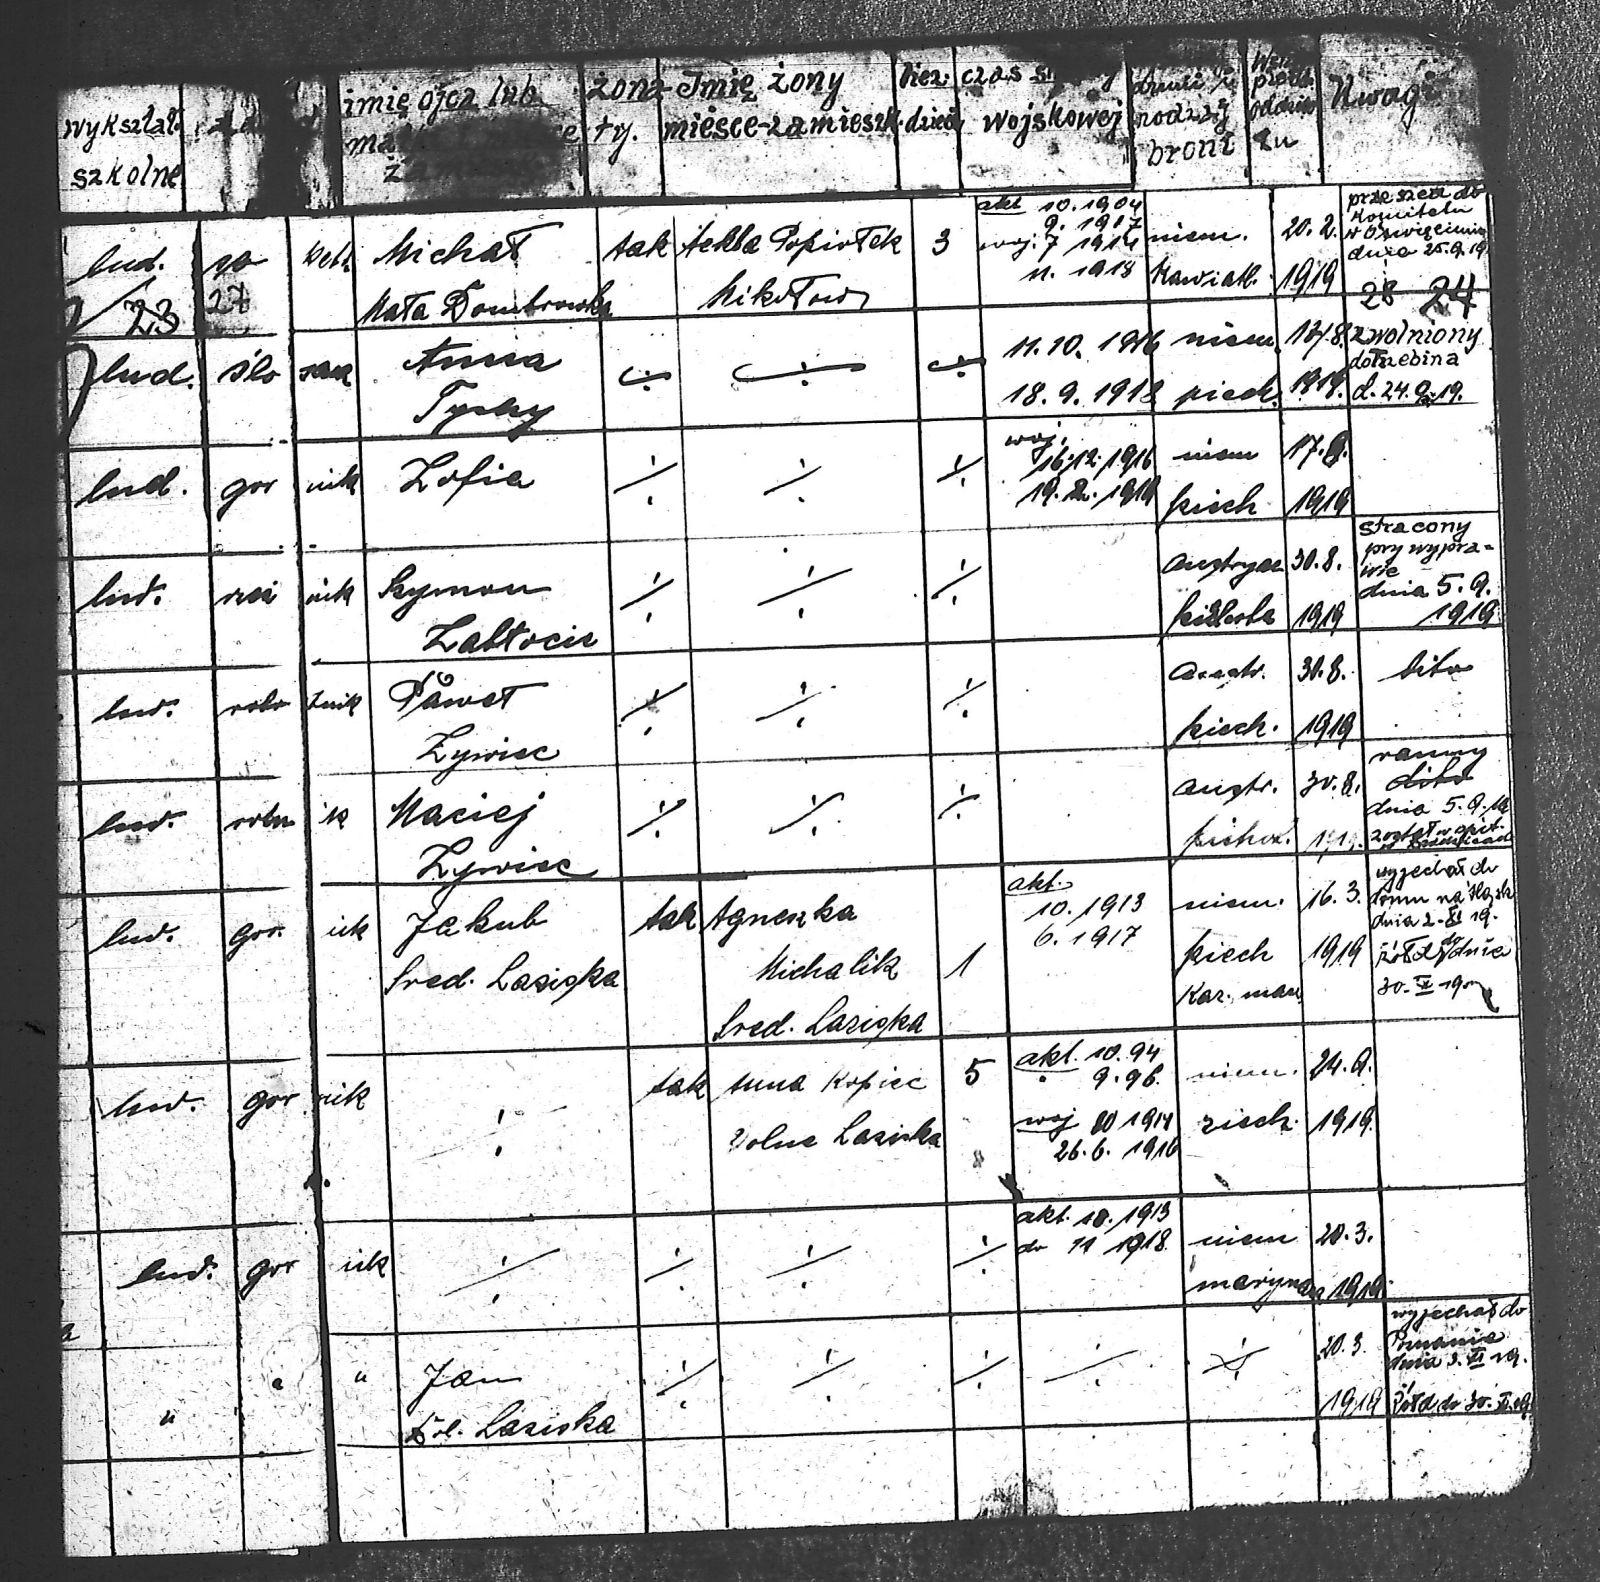 wykształ. szkolne
imię ojca lub
żona-ty.
Imię żony
miesce-zamieszk.
licz. dzieci
czas
wojskowej
rodzaj
broni
Uwagi
lud.
Michał
Mała Dombrowka
tak
Tekla Popiołek
Mikołow
3
akt 10. 1904
9. 1917
woj. 7 1914
11. 1918
niem.
Kawialr.
20. 2.
1919
przeszedł do
Komitetu
w Oswięcimiu
dnia 25.9.19
23
27
28 24
lud.
ślo
sarz
Anna
Tychy
11. 10. 1916
18. 9. 1918
niem.
piech.
18/8.
1919.
zwolniony
do Trzebina
d. 24. 9. 19.
lud.
gor
nik
Zofia
woj.
16.12.1916
19. 2. 1919
niem
piech
17. 8.
1919
lud.
nik
Szymon
Zabłocie
austryac
piechota
30. 8.
1919
stracony
przy wypra-
wie
dnia 5. 9.
1919
lud.
robo
tnik
Paweł
Zywiec
austr.
piech.
30. 8.
1919
dito
lud.
robn
ik
Maciej
Zywiec
austr.
30. 8.
ranny
dito
dnia 5. 9. 19
lud.
gor.
nik
Jakub
Sred. Laziska
tak
Agneszka
Michalik
Sred. Laziska
1
akt.
10. 1913
6. 1917
niem.
piech
Kar. masz
16. 3.
1919
wyjechał do
domu na Slązk
dnia 2. XI 19.
żołd do dnia
30. XI 19
lud.
gor
nik
tak
Anna Kopiec
Dolne Laziska
5
akt. 10. 94
9. 96.
woj 10 1914
26. 6. 1916
niem.
piech.
24. 8.
1919.
lud.
gor
nik
akt. 10. 1913
do 11 1918.
niem
marynarz
20. 3.
1919
"
"
"
Jan
Dol. Laziska
20. 3.
1919
wyjechał do
Poznania
dnia 3. XI 19.
Żołd do 30. XI. 19